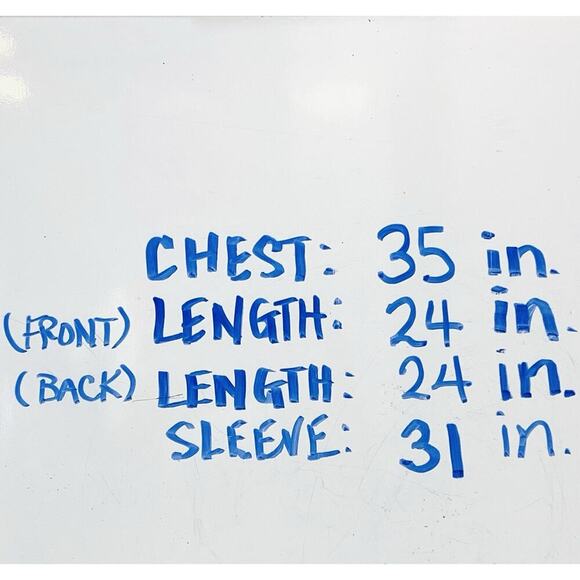 CHEST: 35 in.
(FRONT) LENGTH: 24 in.
(BACK) LENGTH: 24 in.
SLEEVE: 31 in.